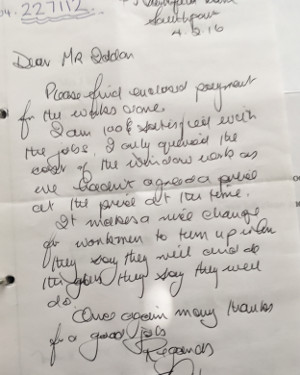 04. 227112.
Southport
4.5.16
Dear Mr
Please find enclosed payment
for the works done.
I am 100% satisfied with
the jobs. I only queried the
cost of the window work as
we hadn't agreed a price
at the price at the time.
It makes a nice change
for workmen to turn up when
they say they will and do
the jobs they say they will
do.
Once again many thanks
for a good job
Regards